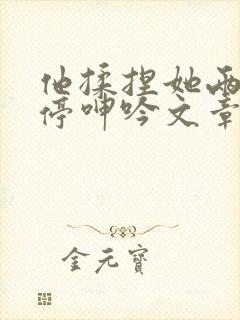 他揉捏她两
停呻吟文章
金元寶